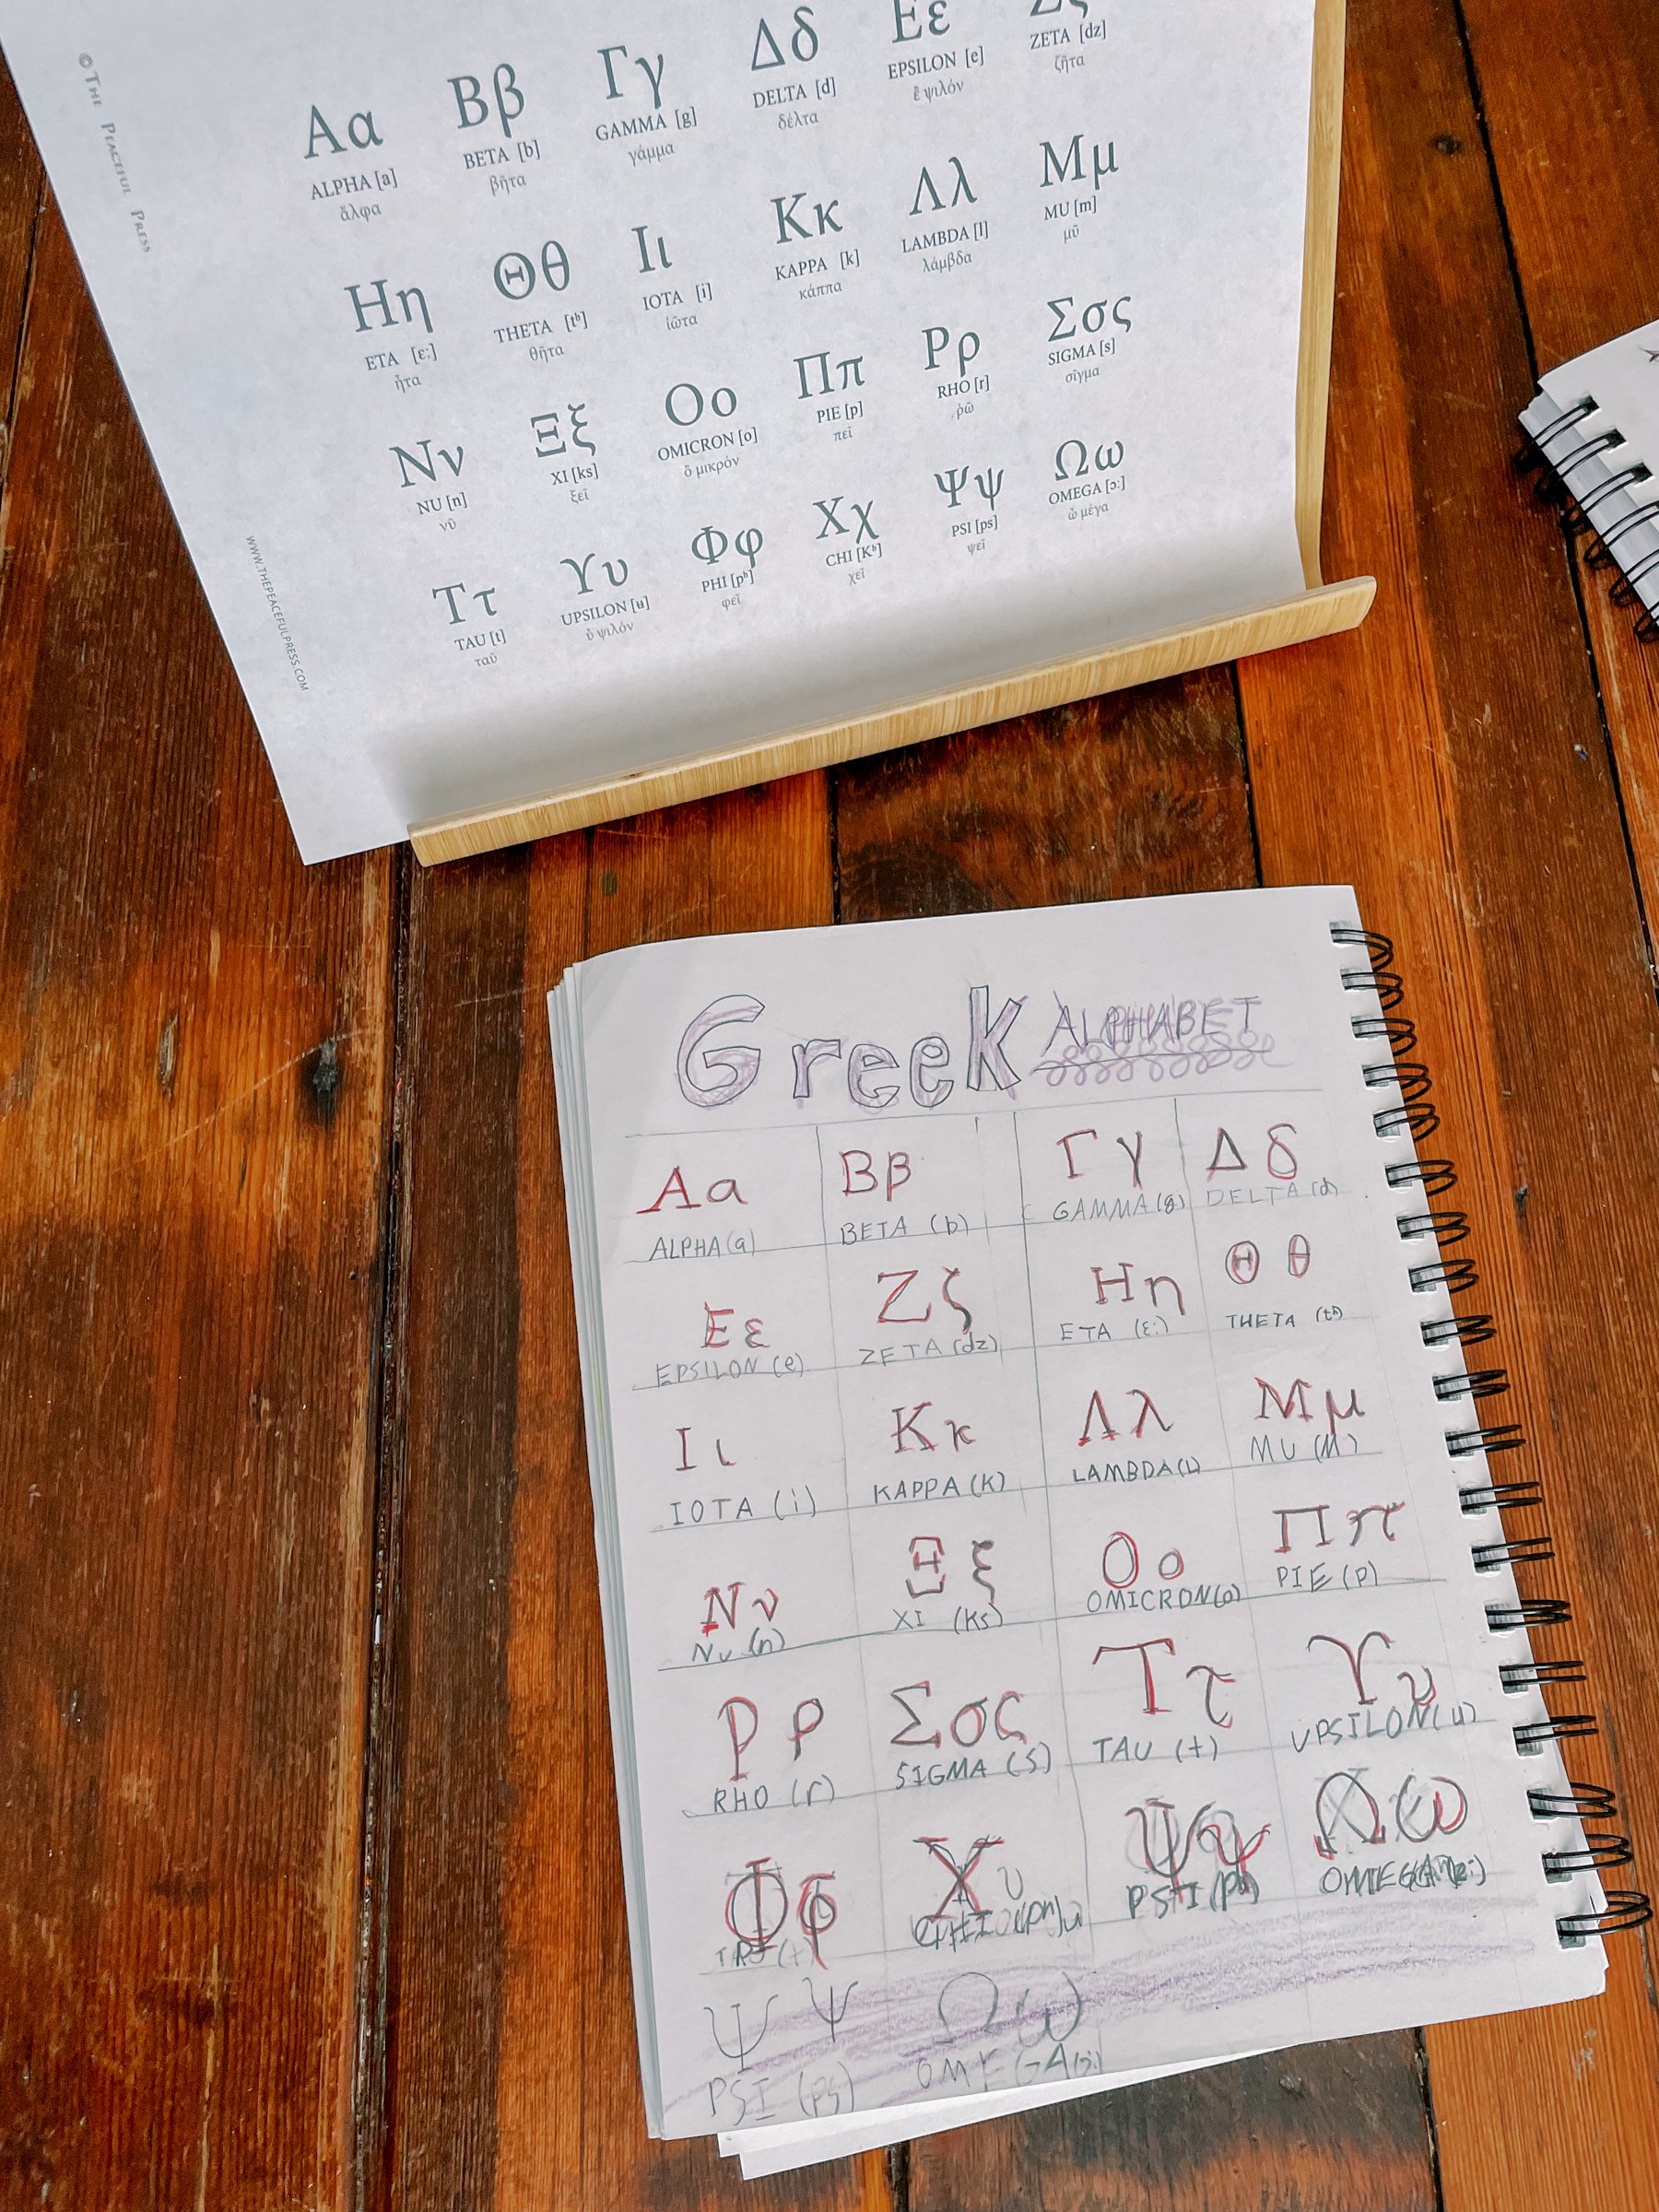 © THE PEACEFUL PRESS
WWW.THEPEACEFULPRESS.COM
Αα Ββ Γγ Δδ Εε Ζζ
ALPHA [a] BETA [b] GAMMA [g] DELTA [d] EPSILON [e] ZETA [dz]
ἄλφα βῆτα γάμμα δέλτα ἒ ψιλόν ζῆτα
Ηη Θθ Ιι Κκ Λλ Μμ
ETA [ɛ:] THETA [tʰ] IOTA [i] KAPPA [k] LAMBDA [l] MU [m]
ἦτα θῆτα ἰῶτα κάππα λάμβδα μῦ
Νν Ξξ Οο Ππ Ρρ Σσς
NU [n] XI [ks] OMICRON [o] PIE [p] RHO [r] SIGMA [s]
νῦ ξεῖ ὂ μικρόν πεῖ ῥῶ σῖγμα
Ττ Υυ Φφ Χχ Ψψ Ωω
TAU [t] UPSILON [u] PHI [pʰ] CHI [Kʰ] PSI [ps] OMEGA [ɔ:]
ταῦ ὖ ψιλόν φεῖ χεῖ ψεῖ ὦ μέγα
Greek ALPHABET
Αα Ββ Γγ Δδ
ALPHA (a) BETA (b) GAMMA (g) DELTA (d)
Εε Ζζ Ηη Θθ
EPSILON (e) ZETA (dz) ETA (ɛ:) THETA (tʰ)
Ιι Κκ Λλ Μμ
IOTA (i) KAPPA (K) LAMBDA (L) MU (M)
Νν Ξξ Οο Ππ
NU (n) XI (Ks) OMICRON (o) PIE (P)
Ρρ Σσς Ττ Υυ
RHO (r) SIGMA (S) TAU (t) UPSILON (u)
Φφ Χ Ψψ Ωω
TAU (t) PSI (ps) OMEGA
Ψψ Ωω
PSI (ps) OMEGA (ɔ:)